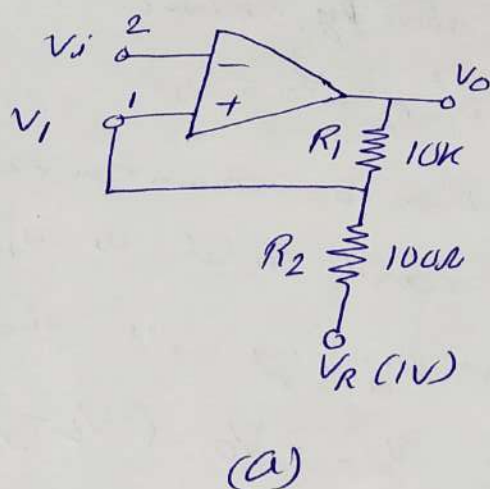 Vi 2
−
V1 1
+
Vo
R1 10K
R2 100Ω
VR (1V)
(a)